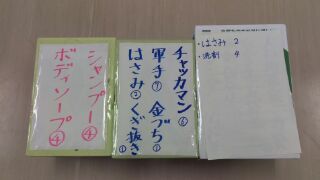 シャンプー④
ボディソープ④
チャッカマン⑥
軍手⑦ 金づち①
はさみ② くぎ抜き①
・はさみ 2
・洗剤 4